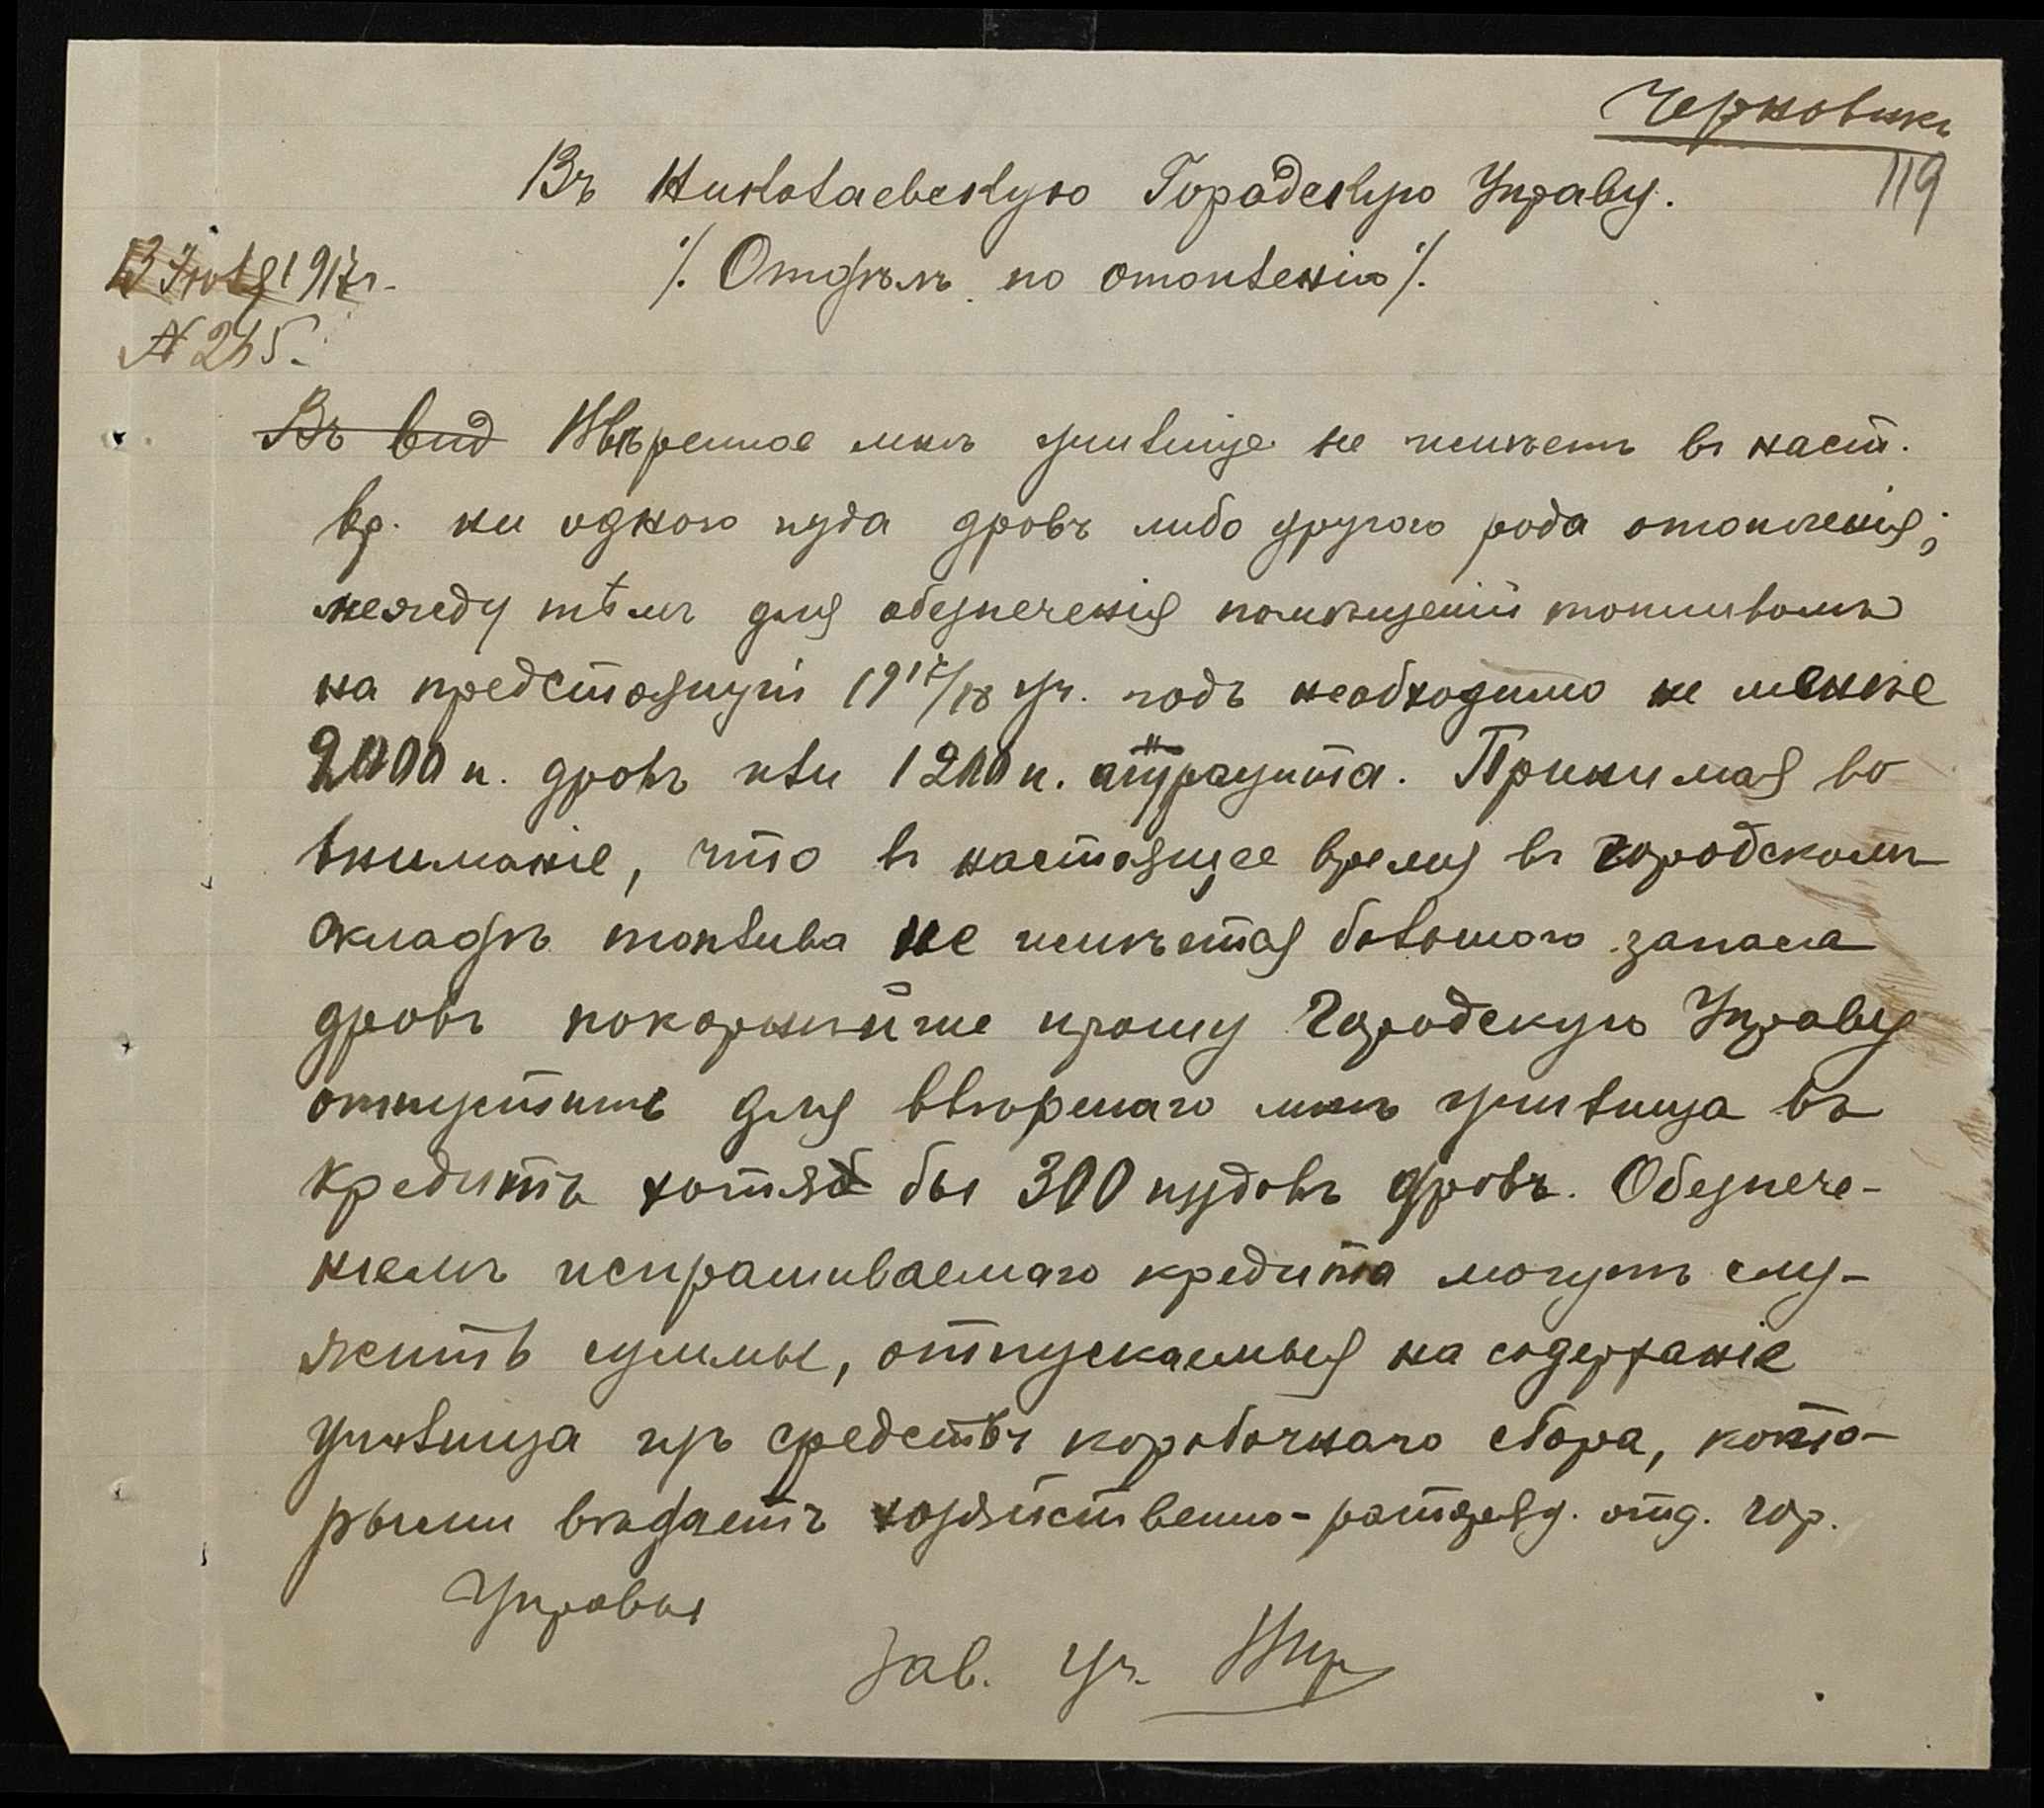 Черновикъ
119
Въ Николаевскую Городскую Управу.
/. Отдѣлъ по отопленію /.
13 Іюля 1917 г.
№ 265.
Въ вид Ввѣренное мнѣ училище не имѣетъ въ наст.
вр. ни одного пуда дровъ либо другого рода отопленія;
между тѣмъ для обезпеченія помѣщеній топливомъ
на предстоящій 1917/18 уч. годъ необходимо не менѣе
2000 п. дровъ или 1200 п. антрацита. Принимая во
вниманіе, что въ настоящее время въ городскомъ
складѣ топлива не имѣется большого запаса
дровъ покорнѣйше прошу Городскую Управу
отпустить для ввѣреннаго мнѣ училища въ
кредитъ хотя бы 300 пудовъ дровъ. Обезпече-
ніемъ испрашиваемаго кредита могутъ слу-
жить суммы, отпускаемыя на содержаніе
училища изъ средствъ коробочнаго сбора, кото-
рыми вѣдаетъ хозяйственно-распоряд. отд. гор.
Управы
Зав. уч.